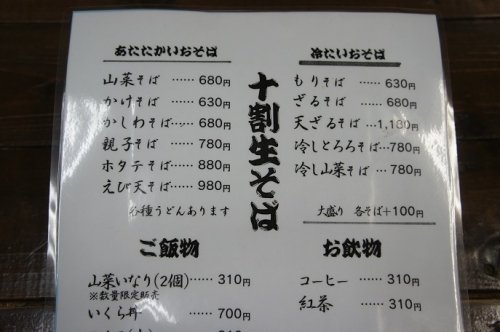 十割生そば
あたたかいおそば
山菜そば ……680円
かけそば ……630円
かしわそば…680円
親子そば ……780円
ホタテそば…880円
えび天そば…980円
各種うどんあります
冷たいおそば
もりそば ……630円
ざるそば ……680円
天ざるそば…1,180円
冷しとろろそば…780円
冷し山菜そば …780円
大盛り 各そば+100円
ご飯物
山菜いなり(2個)……310円
※数量限定販売
いくら丼 ……700円
310円
お飲物
コーヒー ……310円
紅茶 ……310円